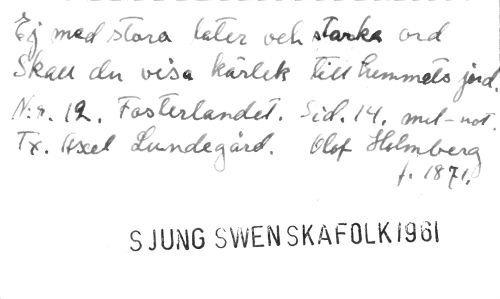 Ej med stora later och starka ord
Skall du visa kärlek till hemmets jord.
N:r. 12. Fosterlandet. Sid. 14. mel-not.
Tx. Axel Lundegård. Olof Holmberg
f. 1871.
SJUNG SWENSKAFOLK 1961